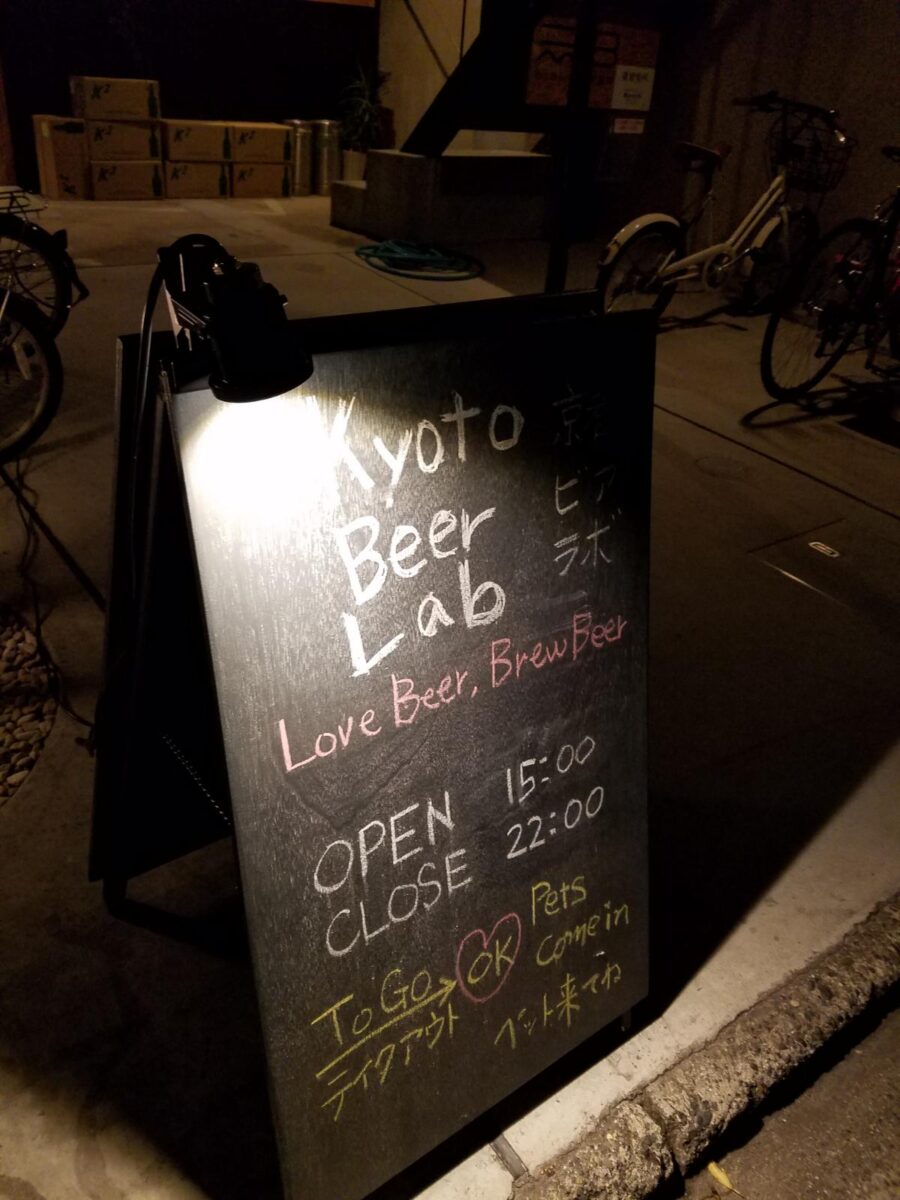 Kyoto
Beer
Lab
京都
ビア
ラボ
Love Beer, Brew Beer
OPEN 15:00
CLOSE 22:00
To Go OK
テイクアウト
Pets
Come in
ペット来てね
K²
K²
K²
K²
K²
K²
K²